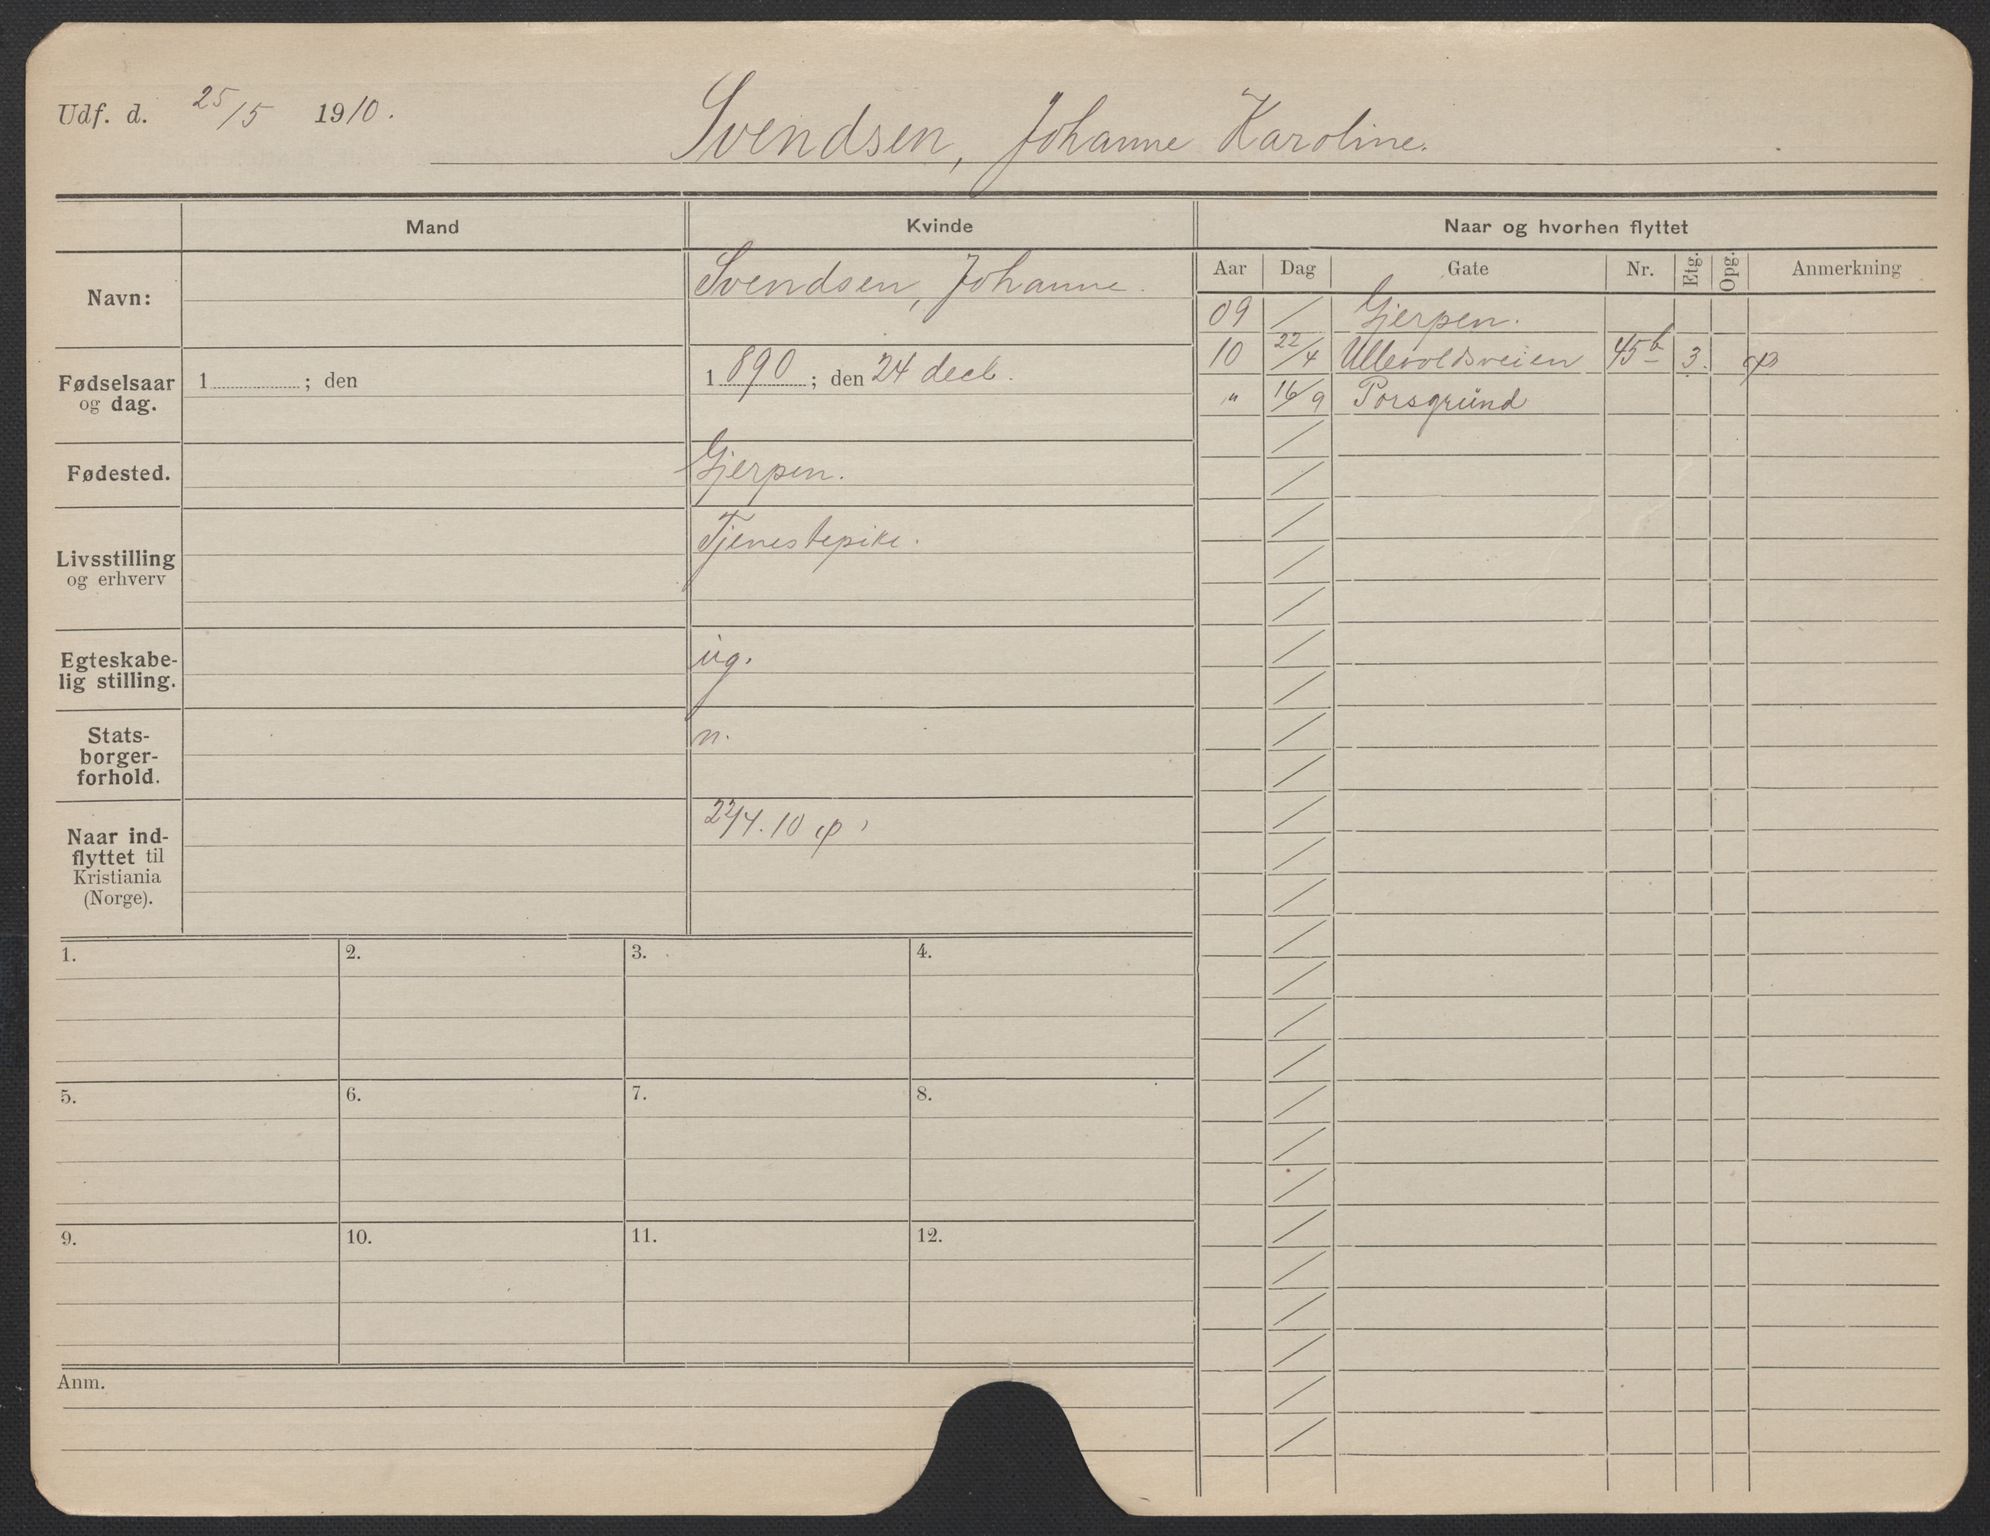 Udf. d. 25/5 1910.
Svendsen, Johanne Karoline.
Mand Kvinde Naar og hvorhen flyttet
Aar Dag Gate Nr. Etg. Opg. Anmerkning
Navn: Svendsen, Johanne.
09 / Gjerpen.
10 22/4 Ullevoldsveien 45b 3.
Fødselsaar og dag. 1 ; den 1890 ; den 24 decb.
" 16/9 Porsgrund
Fødested. Gjerpen.
Livsstilling og erhverv Tjenestepike.
Egteskabe-
lig stilling. ug.
Stats-
borger-
forhold. n.
Naar ind-
flyttet til
Kristiania
(Norge). 22/4.10
1. 2. 3. 4.
5. 6. 7. 8.
9. 10. 11. 12.
Anm.